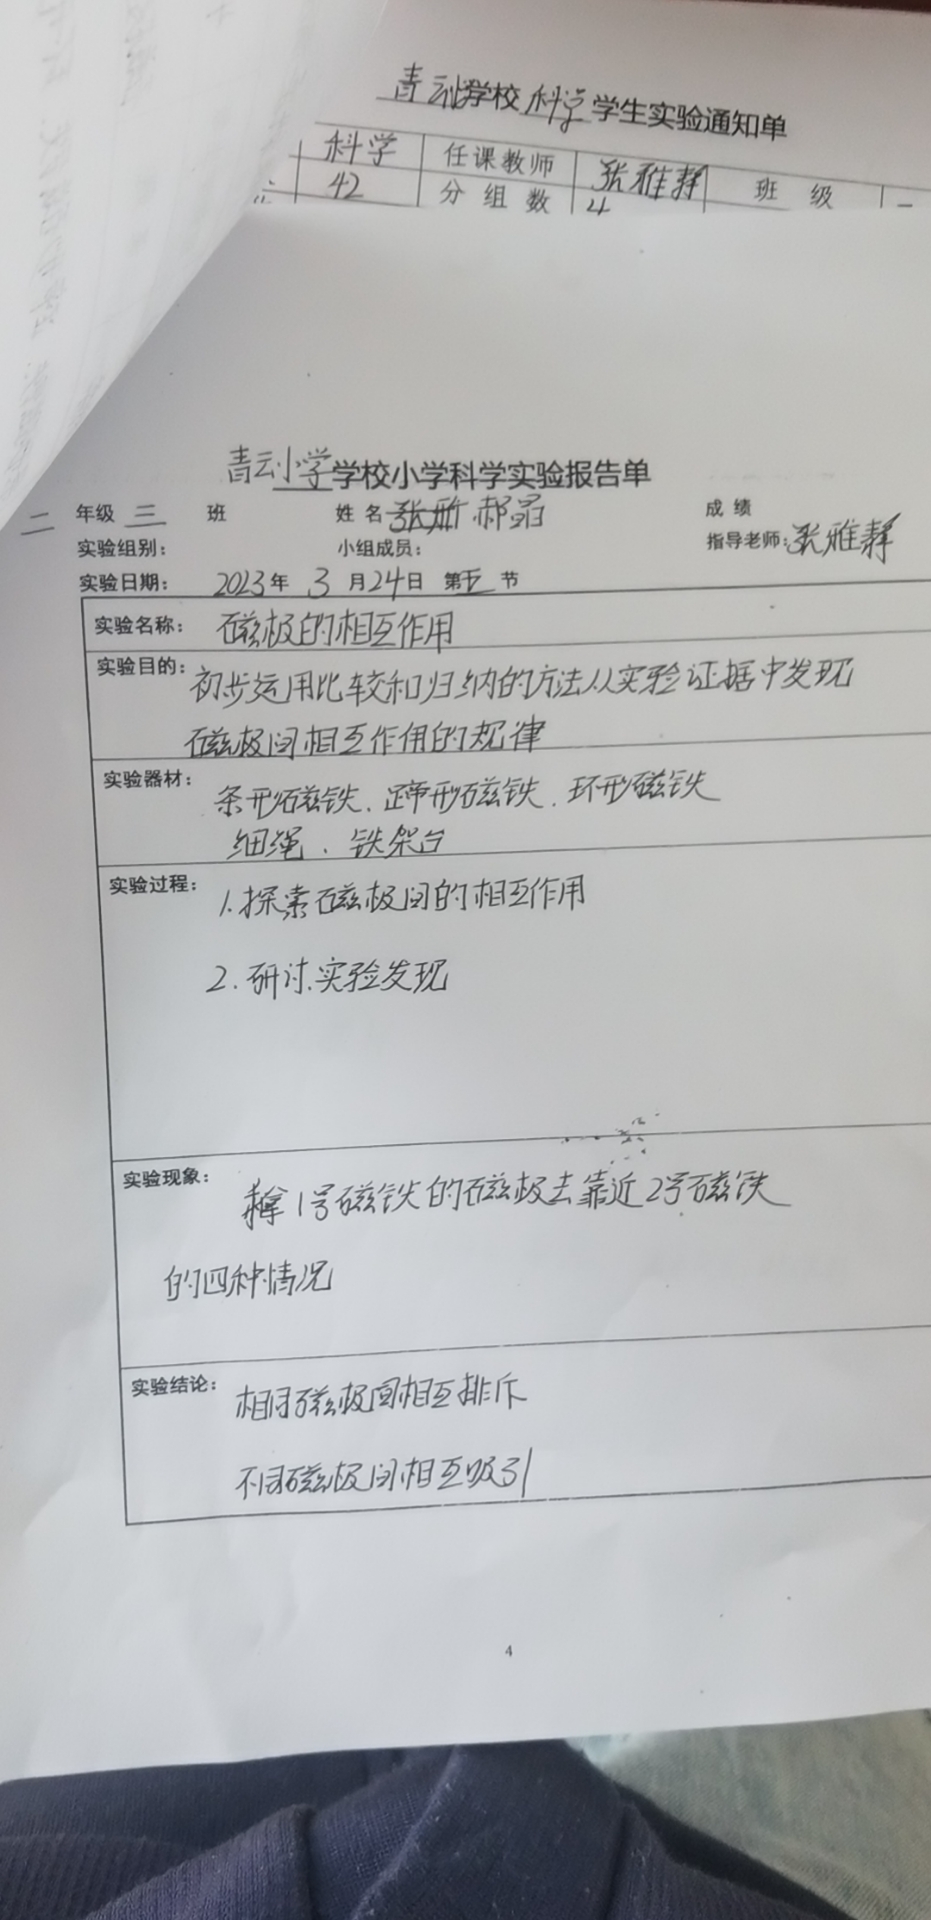 青云小学校 科学 学生实验通知单
科学 任课教师 张雅静
42 分组数 4 班级
青云小学学校小学科学实验报告单
二 年级 三 班 姓名 郝晶 成绩
实验组别： 小组成员： 指导老师：张雅静
实验日期： 2023年 3月24日 第五节
实验名称： 磁极的相互作用
实验目的： 初步运用比较和归纳的方法从实验证据中发现
磁极间相互作用的规律
实验器材： 条形磁铁、蹄形磁铁、环形磁铁
细绳、铁架台
实验过程： 1.探索磁极间的相互作用
2.研讨实验发现
实验现象： 拿1号磁铁的磁极去靠近2号磁铁
的四种情况
实验结论： 相同磁极间相互排斥
不同磁极间相互吸引
4